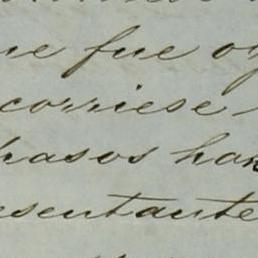 ue fue o
corriese
hasos ha
esentante